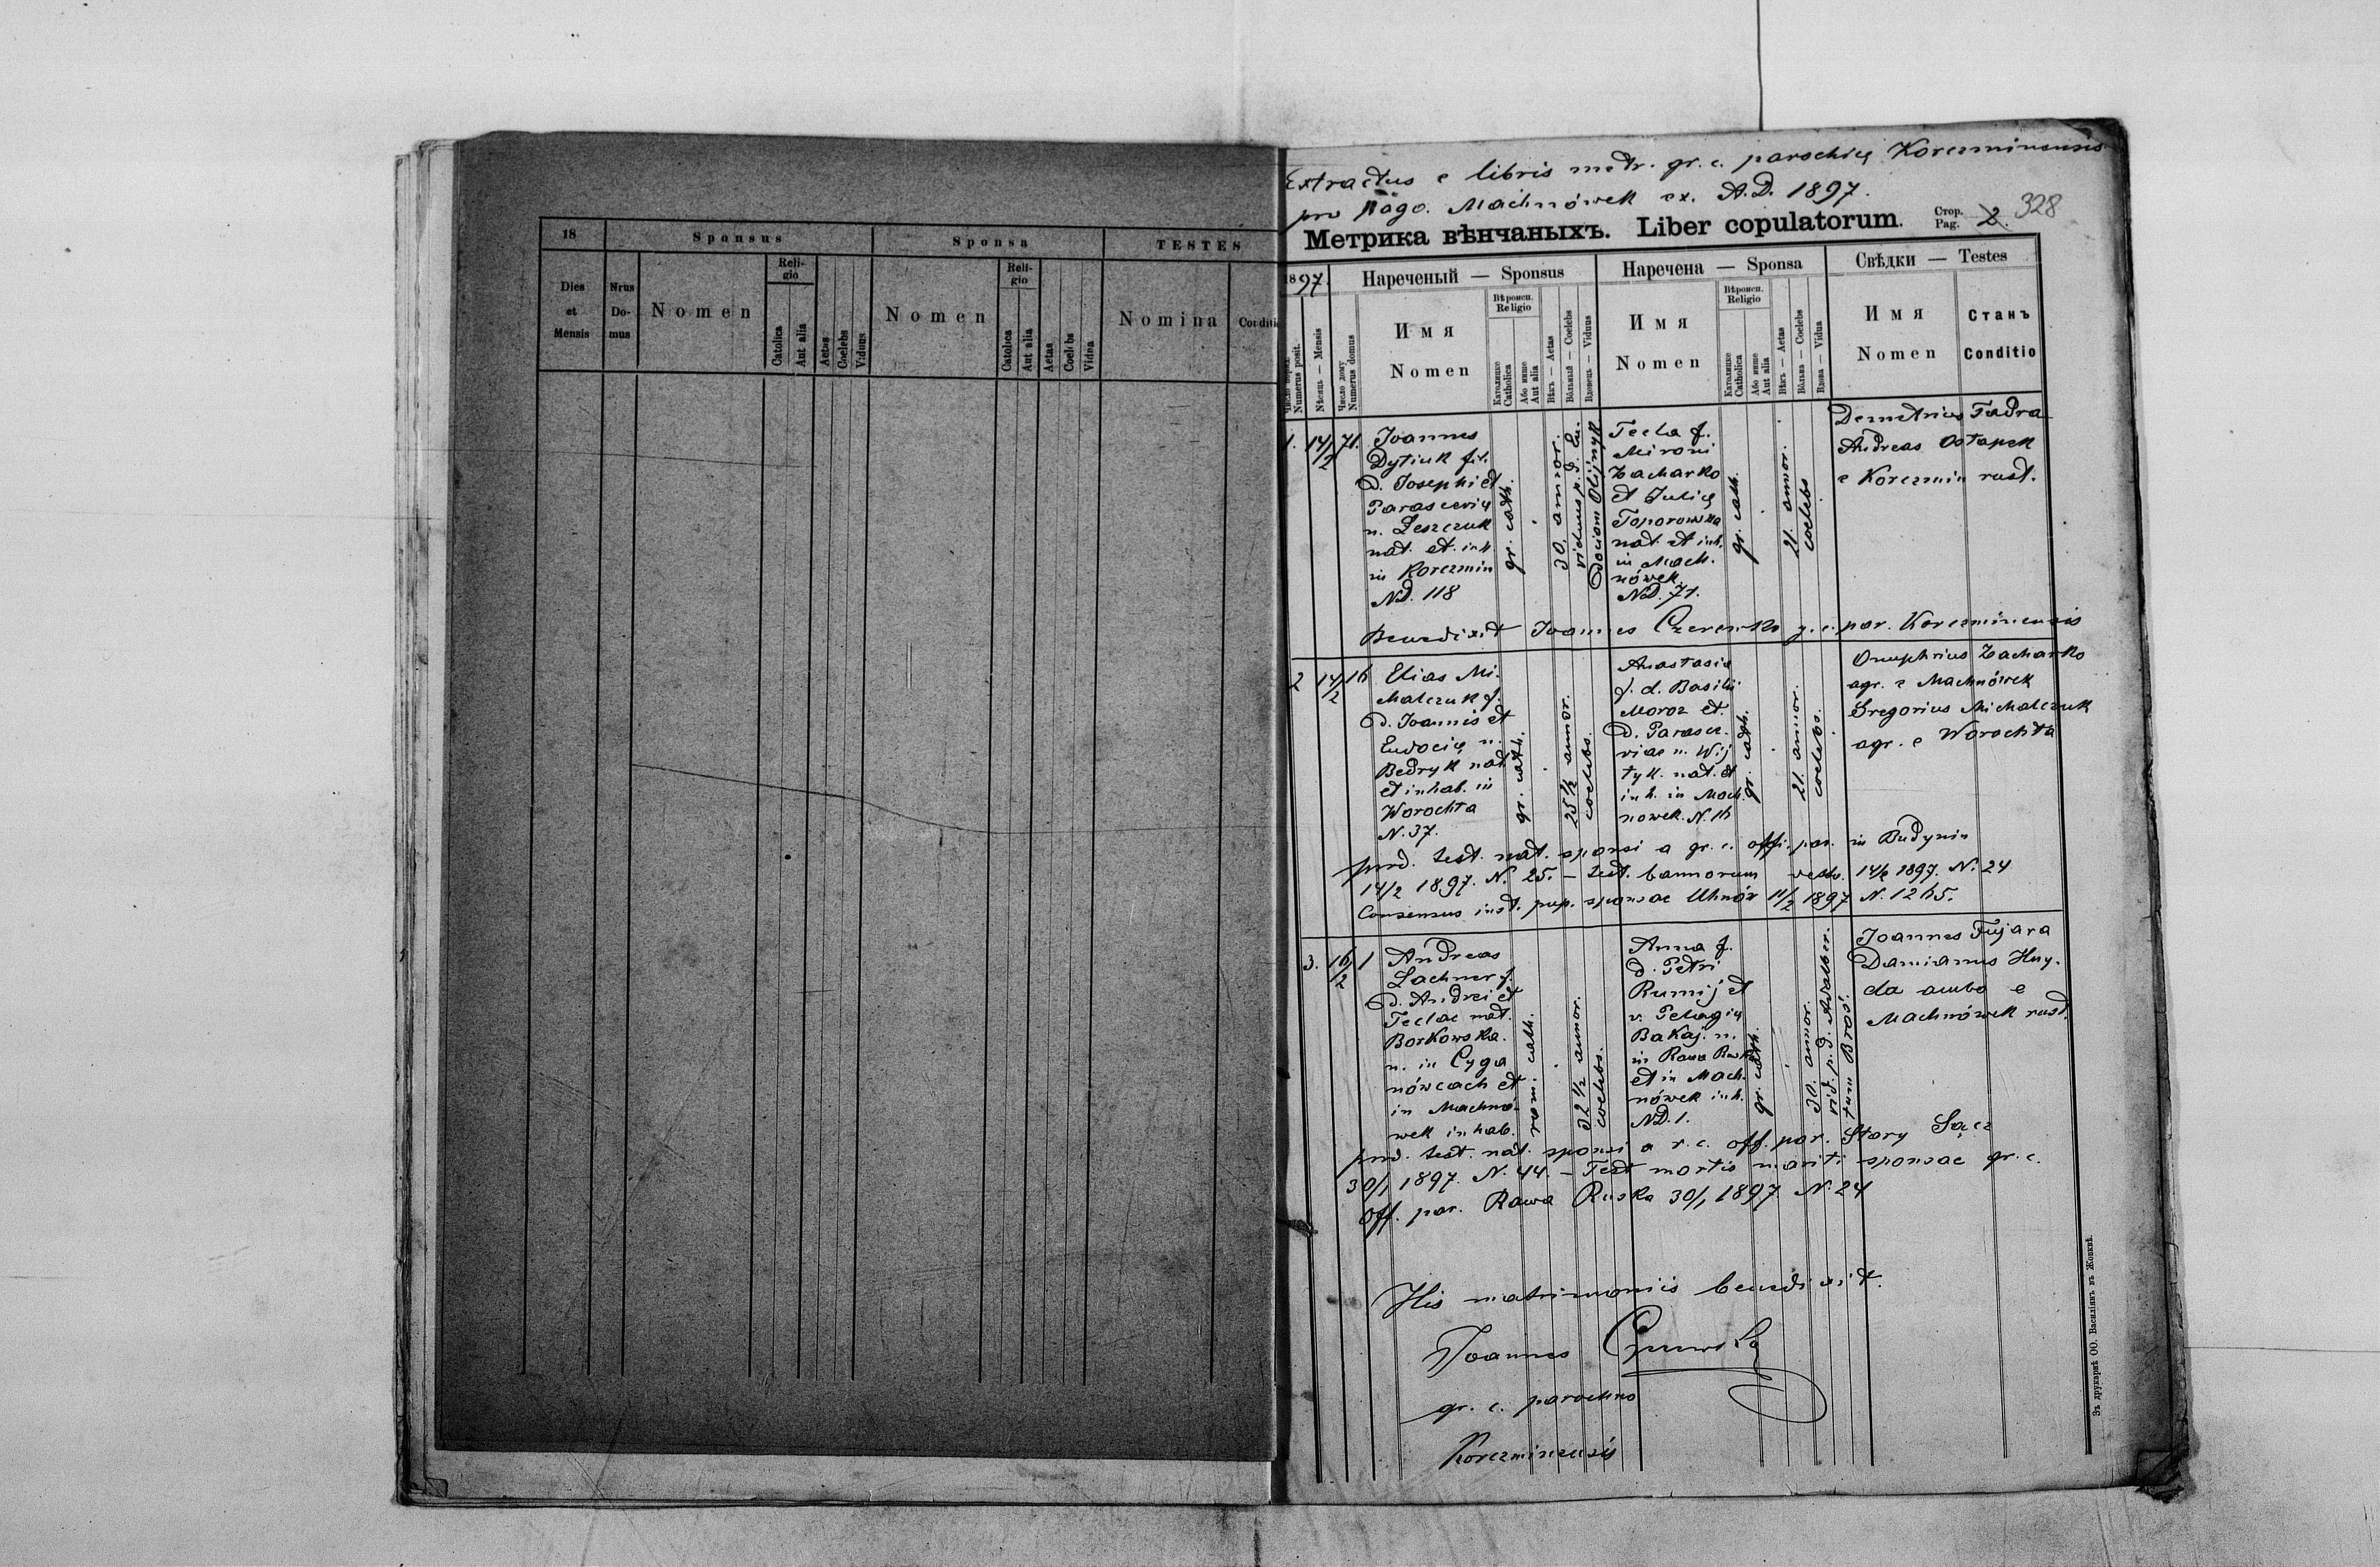 18
Sponsus
Sponsa
TESTES
Dies et Mensis
Nrus Domus
Nomen
Religio
Catolica
Aut alia
Aetas
Coelebs
Viduus
Nomen
Religio
Catolica
Aut alia
Aetas
Coelebs
Vidua
Nomina
Conditi
Extractus e libris metr. gr. c. parochię Korczminensis
pro pago. Machnówek ex. A.D. 1897.
Метрика вѣнчаныхъ. Liber copulatorum.
Стор. Pag. 2. 328
1897.
Нареченый — Sponsus
Наречена — Sponsa
Свѣдки — Testes
Numerus posit.
Мѣсяць — Mensis
Число дому
Numerus domus
Имя
Nomen
Вѣроисп.
Religio
Католицке
Catholica
Або инше
Aut alia
Вѣкъ — Aetas
Вольный — Coelebs
Вдовець — Viduus
Имя
Nomen
Вѣроисп.
Religio
Католицке
Catholica
Або инше
Aut alia
Вѣкъ — Aetas
Вôльна — Coelebs
Вдова — Vidua
Имя
Nomen
Станъ
Conditio
1. 14/2 71.
Joannes
Dytiuk fil.
d. Josephi et
Parascevię
n. Leszczuk
nat. et. inh
in Korczmin
ND. 118
gr. cath.
30. annor.
viduus p. d. Eu-
dociam Olijnyk
Tecla f.
Mironi
Zacharko
et Julię
Toporowska
nat. et inh.
in Mach-
nówek
ND. 71.
gr. cath.
21. annor.
coelebs
Demetrius Fedra
Andreas Ostapek
e Korczmin rust.
Benedixit Joannes g. c. par. Korczminensis
2 14/2 16
Elias Mi-
chalczuk f.
d. Joannis et
Eudocię n.
Bedryk nat
et inhab. in
Worochta
N. 37.
gr. cath.
25 1/2 annor.
coelebs.
Anastasia
f. d. Basilii
Moroz et.
d. Parasce-
viae n. Wij
tyk. nat. et
inh. in Mach-
nowek. N. 16
gr. cath.
21. annor.
coelebs.
Onuphrius Zacharko
agr. e Machnówek
Gregorius Michalczuk
agr. e Worochta
prod. test. nat. sponsi a gr. c. off. par. in Budynin
14/2 1897. N. 25. – test. bannorum 14/2 1897. N. 24
Consensus inst. pup. sponsae Uhnów 11/2 1897 N. 1265.
3. 16/2 1
Andreas
Lachner f.
d. Andrei et
Teclae nat.
Borkowska.
n. in Cyga
nówcach et
in Machnó-
wek inhab.
rom. cath.
32 1/2 annor.
coelebs.
Anna f.
d. Petri
Rumij et
v. Pelagię
Bakaj. n.
in Rawa Rusk
et in Mach-
nówek inh.
ND. 1.
gr. cath.
30. annor.
vid. p. d. Adalber-
tum Broś.
Joannes Fujara
Damianus Huy-
da ambo e
Machnówek rust.
prod. test. nat. sponsi a r. c. off. par. Stary Sącz
30/1 1897. N. 44. – Test mortis mariti sponsae gr. c.
off. par. Rawa Ruska 30/1 1897 N. 24
His matrimoniis benedixit.
Joannes
gr. c. parochus
Korczminensis
Зъ друкарнѣ ОО. Василіянъ въ Жовквѣ.